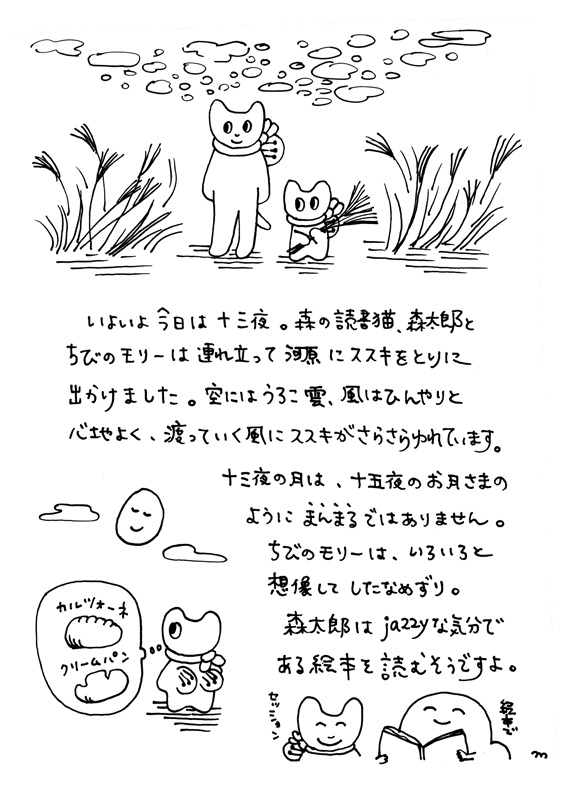 いよいよ今日は十三夜。森の読書猫、森太郎と
ちびのモリーは連れ立って河原にススキをとりに
出かけました。空にはうろこ雲、風はひんやりと
心地よく、渡っていく風にススキがさらさらゆれています。
十三夜の月は、十五夜のお月さまの
ようにまんまるではありません。
ちびのモリーは、いろいろと
想像してしたなめずり。
森太郎はjazzyな気分で
ある絵本を読むそうですよ。
カルツォーネ
クリームパン
セッション
絵本で
m